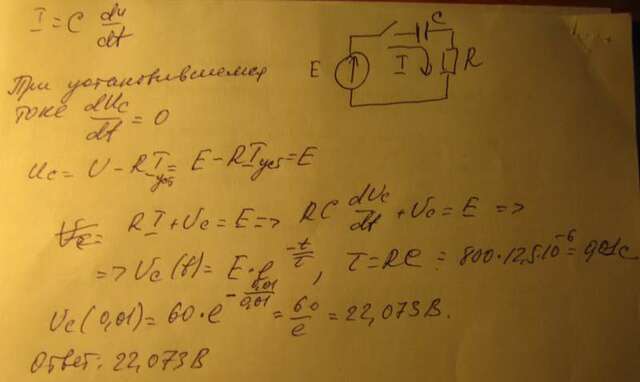 I = C du/dt
E I C R
При установившемся
токе dUc/dt = 0
Uc = U - RIуст = E - RIуст = E
RI + Uc = E => RC dUc/dt + Uc = E =>
=> Uc(t) = E · e^(-t/τ), τ = RC = 800·12,5·10^-6 = 0,01с
Uc(0,01) = 60·e^(-0,01/0,01) = 60/e = 22,073В.
Ответ: 22,073В